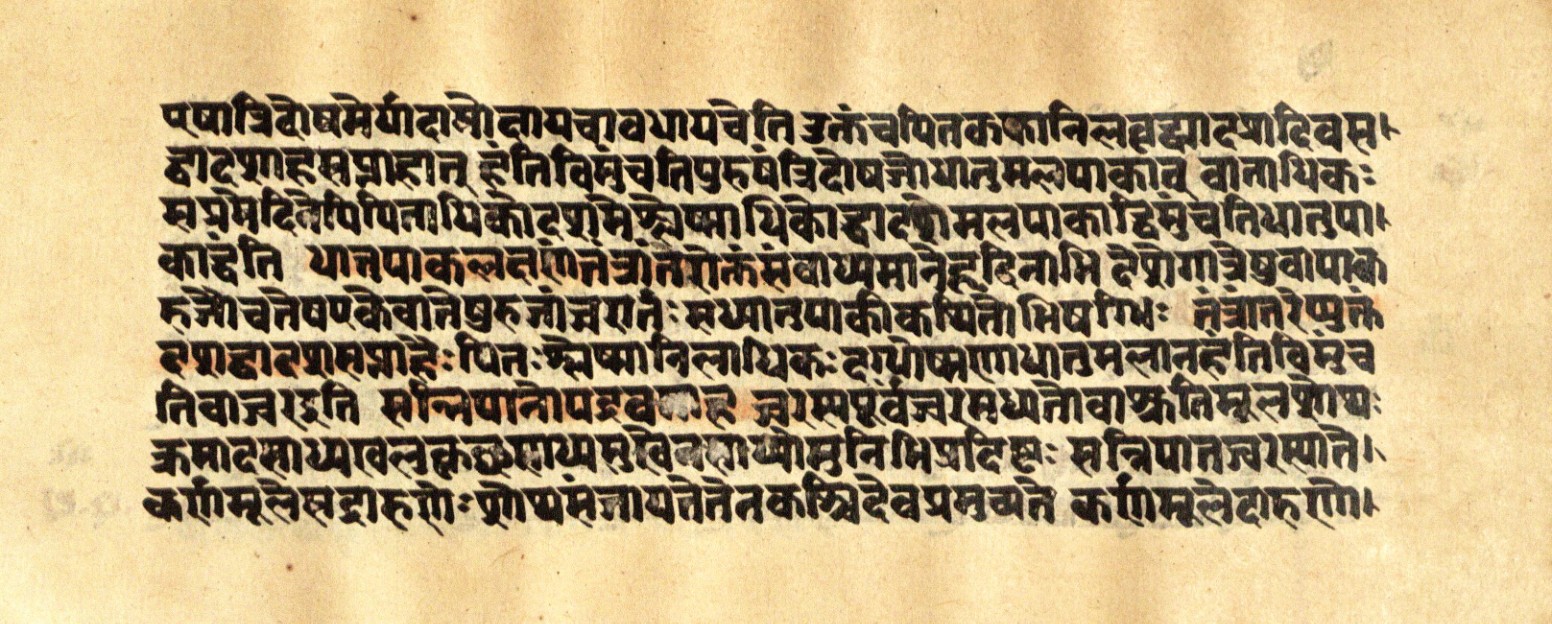 एषात्रिदोषमेर्यादामोक्षायचावधायचेति उक्तंचपित्तकफानिलवृद्ध्यादशदिवस
द्वादशाहसप्ताहात् हंतिविमुंचतिपुरुषंत्रिदोषजोधातुमलपाकात् वाताधिकः
सप्तमेदिनेपिपित्ताधिकोदशमेश्लेष्माधिकोद्वादशेमलपाकाद्विमुंचतिधातुपा
काद्धंति धातुपाकलक्षणंतंत्रांतरोक्तंसंवाध्यमानेहृदिनाभिदेशेगात्रेषुवापाक
रुजौचतेषपक्वेवातेषुरुजांज्वरार्तः सधातुपाकीकथितोभिषग्भिः तंत्रांतरेप्युक्तं
दशद्वादशसप्ताहैः पित्तश्लेष्मानिलाधिकः दग्धोष्मणाधातुमलानहंतिविमुंच
तिवाज्वरइति सन्निपातोपद्रव ज्वरस्यपूर्वंज्वरमध्यतोवाश्रुतिमूलशोथः
क्रमादसाध्यखलुकृछ्रसाध्यसुखेनसाध्योमुनिभिप्रदिष्टः सन्निपातज्वरस्यांते
कर्णमूलेसुदारुणेः शोथसंजायतेतेनकश्चिदेवप्रमुच्यते कर्णमूलेदारुणे